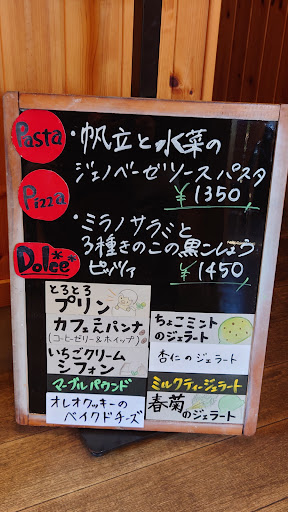 Pasta
・帆立と水菜の
ジェノベーゼソースパスタ
¥1350
Pizza
・ミラノサラミと
3種きのこの黒こしょう
ピッツァ ¥1450
Dolce
とろとろ
プリン
カフェエパンナ
(コーヒーゼリー&ホイップ)
いちごクリーム
シフォン
マーブルパウンド
オレオクッキーの
ベイクドチーズ
ちょこミント
のジェラート
杏仁のジェラート
ミルクティージェラート
春菊のジェラート